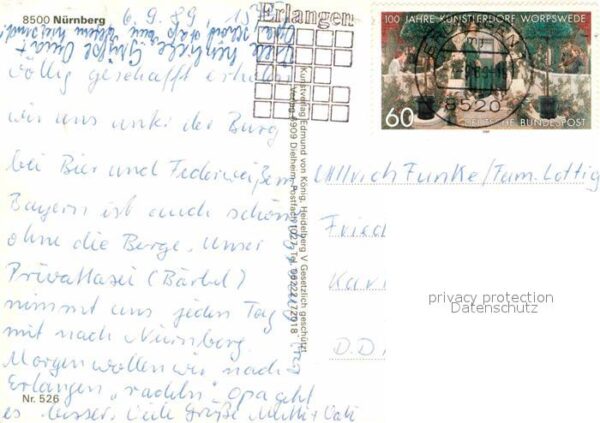 8500 Nürnberg
6.9.89
völlig geschafft erholen
wir uns unter der Burg
bei Bier und Federweißem
Bayern ist auch schön
ohne die Berge. Unser
Privattaxi (Bärbel)
nimmt uns jeden Tag
mit nach Nürnberg.
Morgen wollen wir nach
Erlangen "radeln" Opa geht
es besser. Viele Grüße Mutti + Vati
Nr. 526
herzliche Grüße
Kunstverlag Edmund von König, Heidelberg
Verlag 6909 Dielheim, Postfach 1027, Tel. 06222/72918
Gesetzlich geschützt
Erlangen
100 JAHRE KÜNSTLERDORF WORPSWEDE
60
DEUTSCHE BUNDESPOST
ERLANGEN
8520
Ullrich Funke/Fam. Lottig
Fried
Karl
D.D
privacy protection
Datenschutz